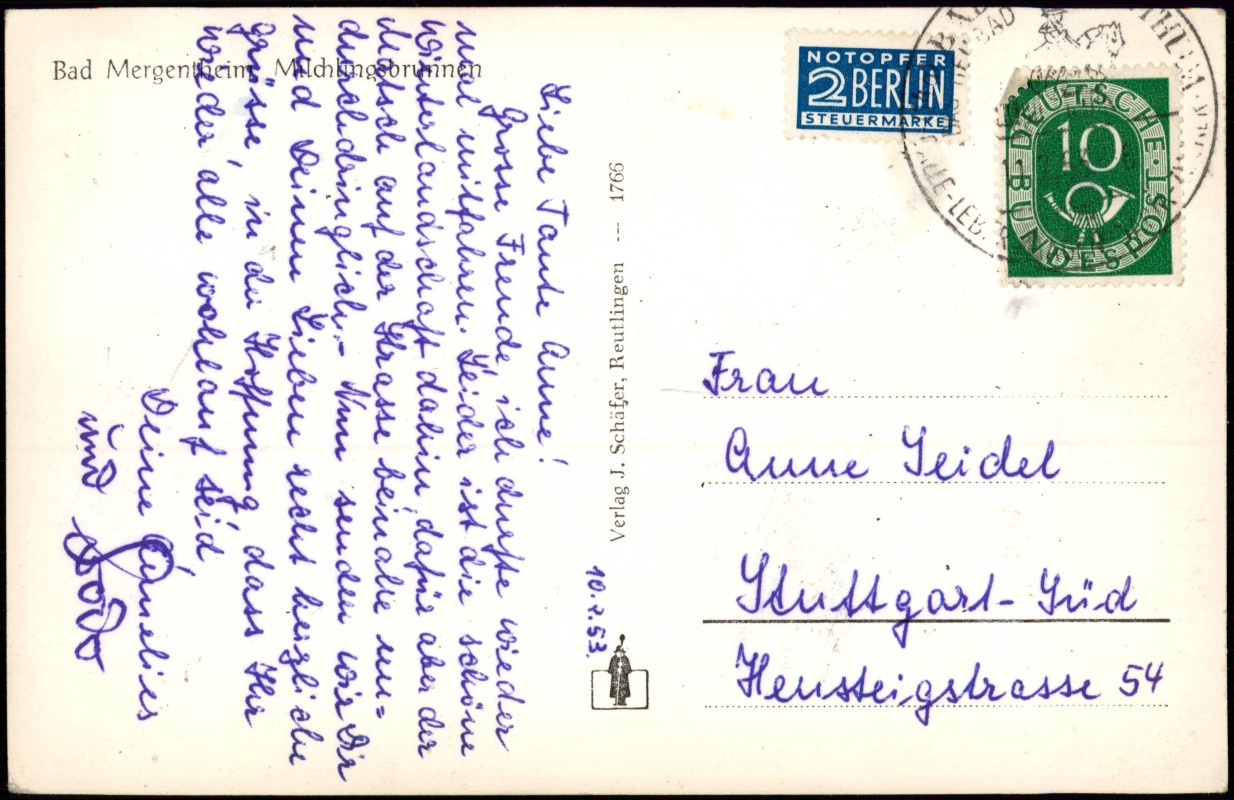 Bad Mergentheim, Milchlingsbrunnen
Liebe Tante Anne!
Grosse Freude, ich durfte wieder
mal mitfahren. Leider ist die schöne
Winterlandschaft dahin, dafür aber der
Matsch auf der Strasse beinahe un=
durchdringlich.- Nun senden wir Dir
und Deinen Lieben recht herzliche
Grüsse, in der Hoffnung, dass Ihr
wieder alle wohlauf seid
Deine Annelies
und
10.2.53.
Verlag J. Schäfer, Reutlingen --- 1766
NOTOPFER
2 BERLIN
STEUERMARKE
DEUTSCHE BUNDESPOST
10
BAD
Frau
Anne Seidel
Stuttgart-Süd
Heusteigstrasse 54